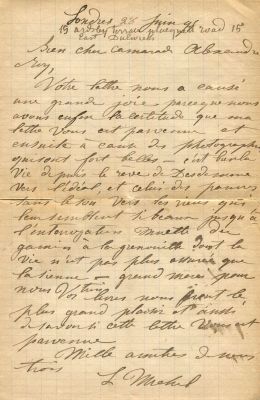 Londres 28 juin
15 15
East Dulwich
Bien cher camarade Alexandre
Roy,
Votre lettre nous a causé
une grande joie parceque nous
avons enfin la certitude que ma
lettre vous est parvenue et
ensuite à cause des photographies
qui sont fort belles — c'est
vie de puis le reve de Desdemone
vers l'idéal, et celui des pauvres
sans
leur semblent si beaux jusqu'à
l'interrogation muette du
gamin à la grenouille dont la
vie n'est pas plus assurée que
la sienne — grand merci pour
nous
Vos livres nous feront le
plus grand plaisir et aussi
de savoir si cette lettre vous est
parvenue
Mille amitiés de nous
trois
L Michel